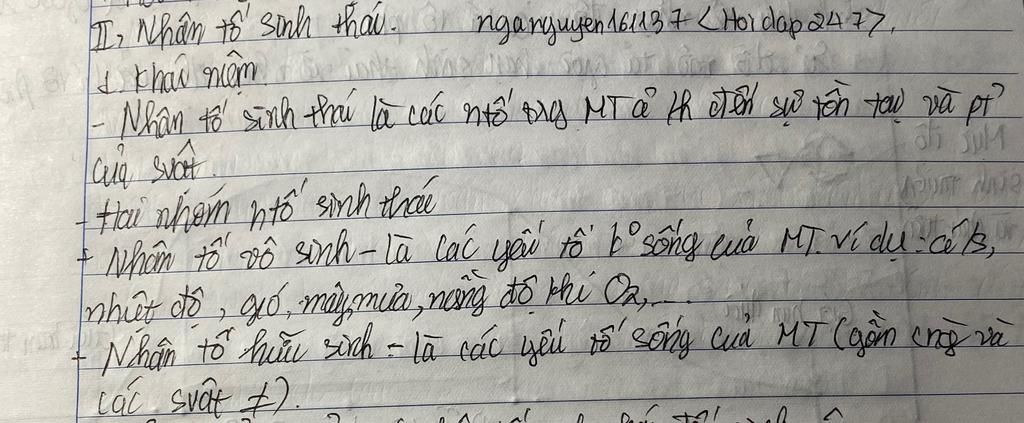 II, Nhân tố sinh thái. nganguyen161137 <Hoidap247>.
1. Khái niệm
- Nhân tố sinh thái là các ntố trg MT ả/h đến sự tồn tại và pt²
của svật.
- Hai nhóm ntố sinh thái
+ Nhân tố vô sinh - là các yếu tố k° sống của MT. ví dụ:
nhiệt độ, gió, mây, mưa, nồng độ khí O2,...
+ Nhân tố hữu sinh - là các yếu tố sống của MT (gồm và
các svật ≠).